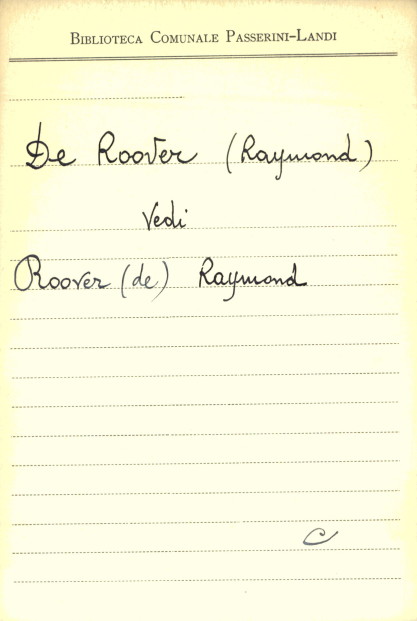 BIBLIOTECA COMUNALE PASSERINI-LANDI
De Roover (Raymond)
Vedi
Roover (de) Raymond
C